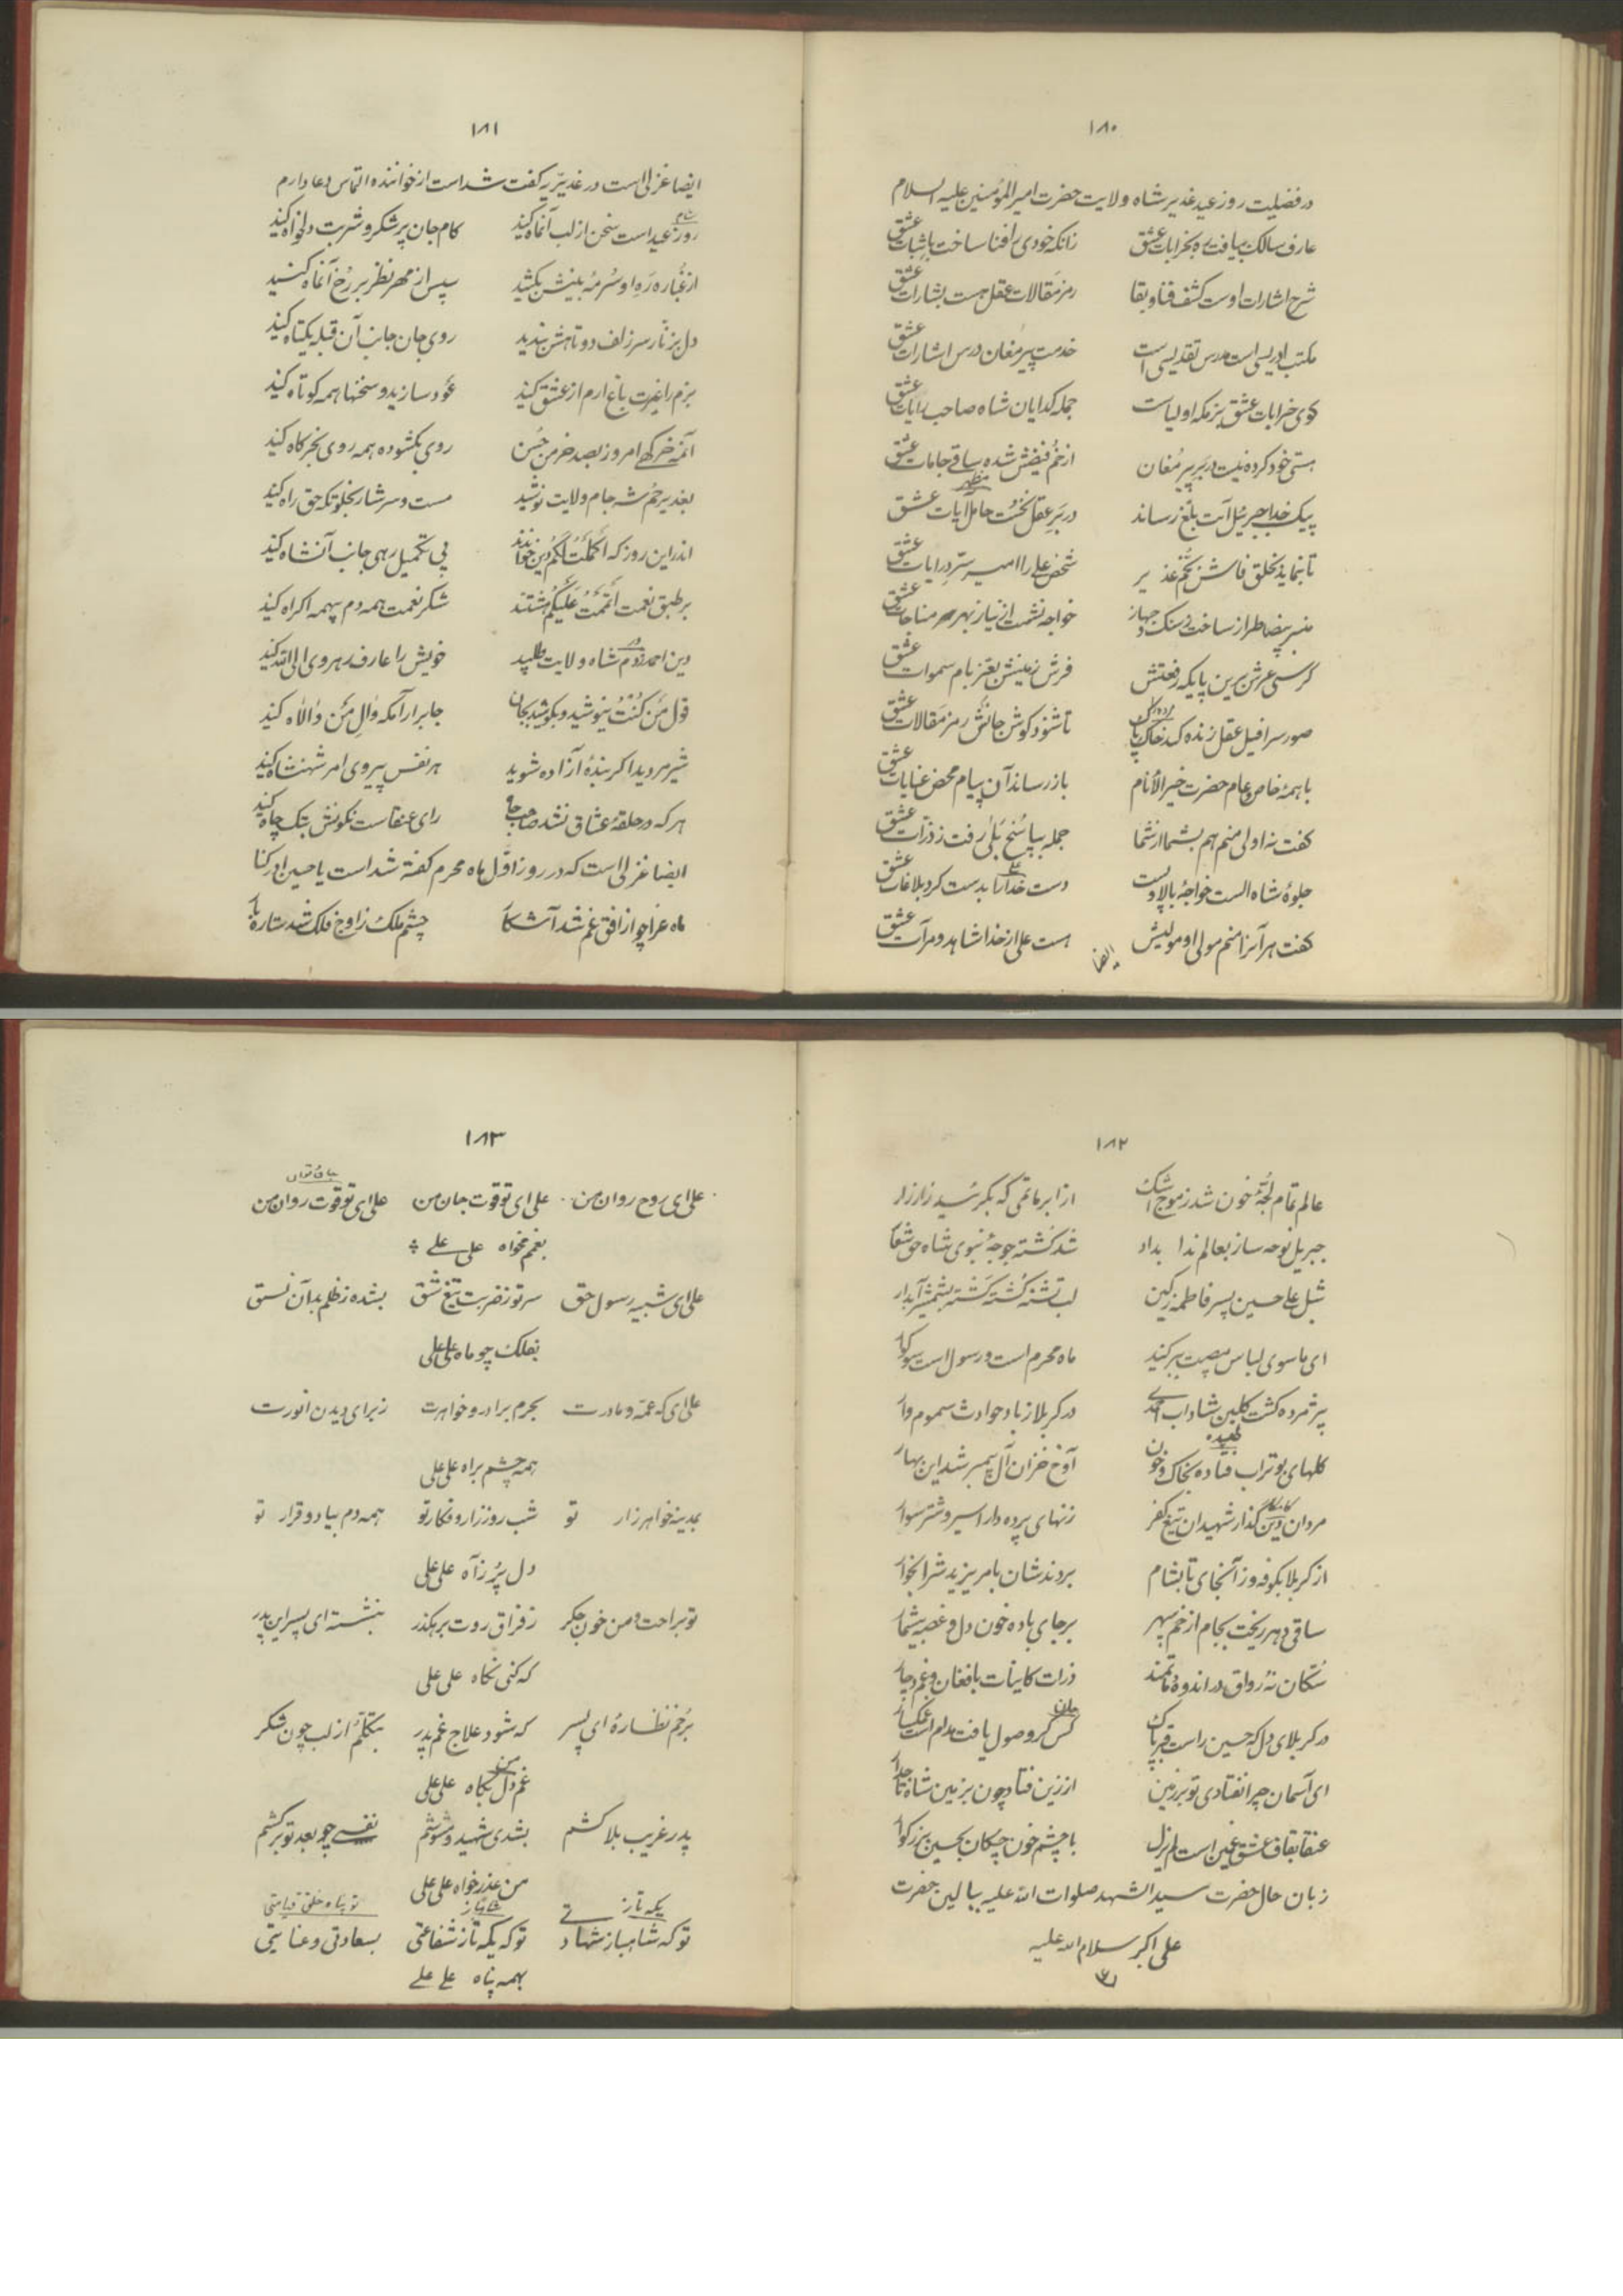 ۱۸۰
در فضیلت روز عید غدیر شاه ولایت حضرت امیرالمؤمنین علیه السلام
عارف سالک بیافت ره بخرابات عشق زانکه خودی را فنا ساخت باثبات عشق
شرح اشارات اوست کشف فنا و بقا رمز مقالات عقل هست بشارات عشق
مکتب ادریسی است مدرس تقدیسی است خدمت پیر مغان درس اشارات عشق
کوی خرابات عشق بزمگه اولیاست جمله گدایان شاه صاحب رایات عشق
هستی خود کرده نیست در بر پیر مغان از خم فیضش شده ساقی جامات عشق
پیک خدا جبرئیل آیت بلغ رساند در بر عقل نخست حامل آیات عشق
مظهر
تا بنماید بخلق فاش بخم غدیر شخص علی را امیر سر درایات عشق
منبر بیضا طراز ساخت ز سنگ و جهاز خواجه نشست از نیاز بهر مناجات عشق
کرسی عرش برین پایگه رفعتش فرش زمینش بعز بام سموات عشق
صور سرافیل عقل زنده کند خاک پاک تا شنود گوش جانش رمز مقالات عشق
با همه خاص و عام حضرت خیرالانام باز رساند آن پیام محض عنایات عشق
گفت نه اولی منم هم بشما از شما جمله بپاسخ بلی رفت ز ذرات عشق
جلوه شاه الست خواجه بالا و پست دست خدا را بدست کرد بلاغات عشق
گفت هر آنرا منم مولی او مولیش هست علی از خدا شاهد و مرآت عشق
ایضا
۱۸۱
ایضا غزلی است در غدیریه گفت شد است از خواننده التماس دعا دارم
روز عید است سخن از لب آنماه کنید کام جان پر شکر و شربت دلخواه کنید
از غباره ره او سرمه بینش بکشید سپس از مهر نظر بر رخ آنماه کنید
دل بزنار سر زلف دوتاهش بندید روی جان جانب آن قبله یکتاه کنید
بزم را غیرت باغ ارم از عشق کنید عود سازید و سخنها همه کوتاه کنید
آنمه خرگهی امروز بصد خرمن حسن روی بگشوده همه روی بخرگاه کنید
بغدیر خم شه جام ولایت نوشید مست و سرشار بخلوتگه حق راه کنید
اندر این روز که اکملت لکم دین خوانند پی تکمیل رهی جانب آنشاه کنید
بر طبق نعمت اتممت علیکم هشتند شکر نعمت همه دم بهمه اکراه کنید
دین احمد ز دم شاه ولایت طلبید خویش را عارف رهروی الی الله کنید
قول من کنت بنوشید و بکوشید بجان جا برارآمگه وال من والاه کنید
شیر مردید اگر بنده آزاده شوید هر نفس پیروی امر شهنشاه کنید
هر که در حلقه عشاق نشد صاحب جاه رای عنقاست نگونش بتک چاه کنید
ایضا غزلی است که در روز اول ماه محرم گفته شد است یا حسین ادرکنا
ماه عزا چو از افق غم شد آشکار چشم ملک ز اوج فلک شد ستاره بار
۱۸۲
عالم تمام لجه خون شد ز موج اشک از ابر ماتمی که بگرئید زار زار
جبریل نوحه ساز بعالم ندا بداد شد کشته جوجه نبوی شاه حق شعار
شبل علی حسین پسر فاطمه زکین لب تشنه کشته گشته بشمشیر آبدار
ای ماسوی لباس مصیبت ببر کنید ماه محرم است و رسول است سوگوار
پژمرده گشت گلبن شاداب احمدی در کربلا ز باد حوادث سموم وار
گلهای بوتراب فتاده بخاک و خون آوخ خزان آل پیمبر شد این بهار
مردان دین گذار شهیدان تیغ کفر زنهای پرده دار اسیر و شتر سوار
از کربلا بکوفه وز آنجای تا بشام بردندشان بامر یزید شرابخوار
ساقی دهر ریخت بجام از خم سپهر بر جای باده خون دل و غصه بیشمار
سکان نه رواق در اندوه ماتمند ذرات کاینات بافغان و غم دچار
در کربلای دل که حسین راست قبر پاک کس گر وصول یافت مدام است غمگسار
ای آسمان چرا نفتادی تو بر زمین از زین فتاد چون بزمین شاه تاجدار
عنقا بقاف عشق غمین است لم یزل با چشم خون چکان بحسین بزرگوار
زبان حال حضرت سید الشهدا صلوات الله علیه ببالین حضرت
علی اکبر سلام الله علیه
۱۸۳
علی ای روح روان من علی ای تو قوت جان من علی ای تو قوت روان من
بغم مخواه علی علی
علی ای شبیه رسول حق سر تو ز ضربت تیغ شق بشده ز ظلم بدآن نسق
بفلک چو ماه علی علی
علی ای که عمه و مادرت بحرم برادر و خواهرت ز برای دیدن انورت
همه چشم براه علی علی
بمدینه خواهر زار تو شب روز زار و فکار تو همه دم بیاد و قرار تو
دل پر ز آه علی علی
تو براحت و من خون جگر ز فراق روت برهگذر بنشسته ای پسر این پدر
که کنی نگاه علی علی
برخم نظاره ای پسر که شود علاج غم پدر بتکلم از لب چون شکر
غم دل بکاه علی علی
پدر غریب بلا کشم بشدی شهید و مشوشم نفسی چو بعد تو بر کشم
من عذر خواه علی علی
یکه تاز شاهباز تو پناه خلق قیامتی
تو که شاهباز شهادتی تو که یکه تاز شفاعتی بسعادتی و عنایتی
بهمه پناه علی علی